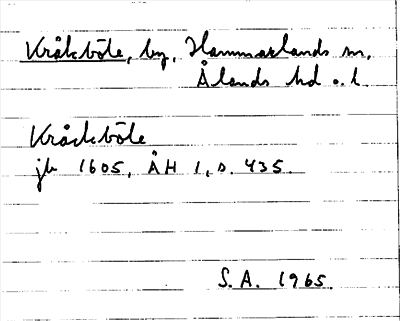 Kråkböte, by, Hammarlands sn,
Ålands hd o. l.
Kråckböte
jb 1605, ÅH 1, s. 435.
S.A. 1965.